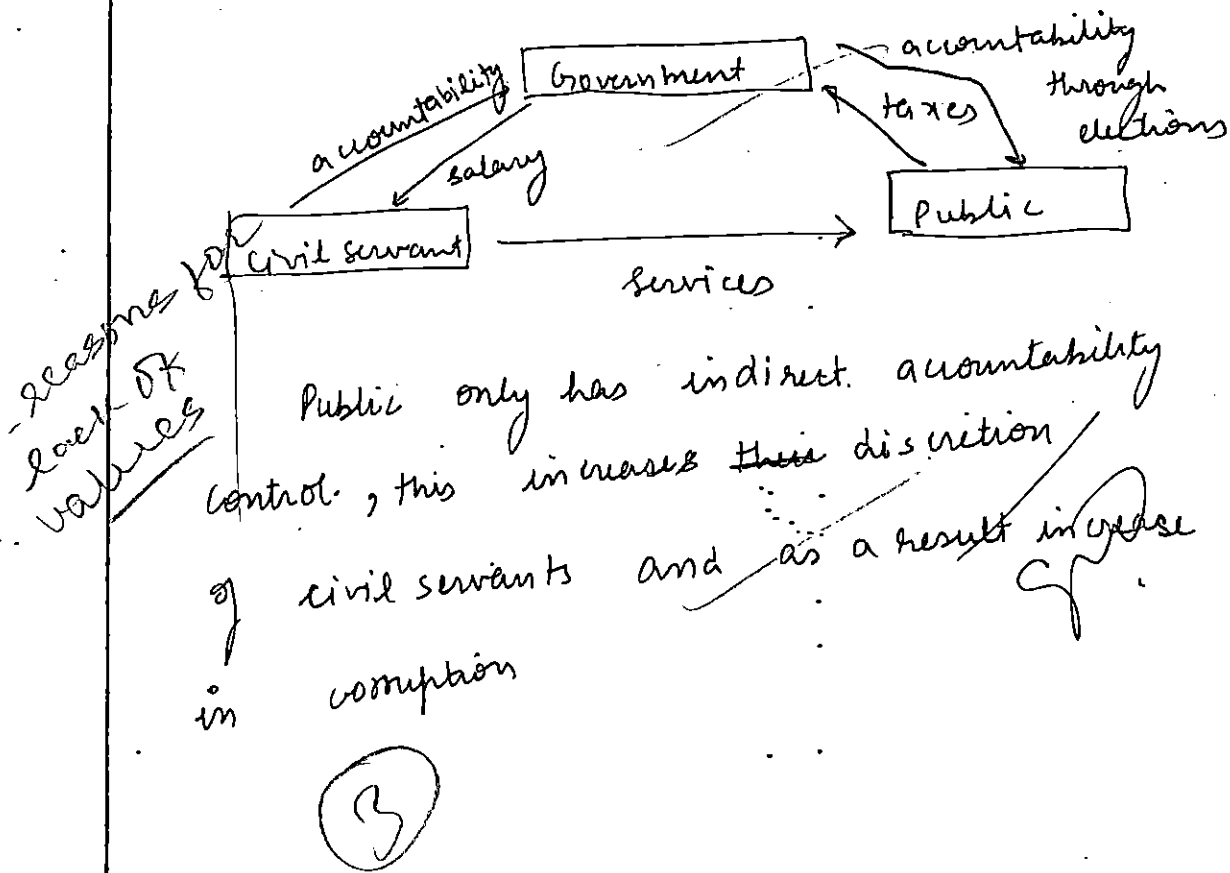 Government
accountability
through
elections
taxes
accountability
salary
Public
Civil servant
Services
reasons for
lack of
values
Public only has indirect. accountability
control., this increases their discretion
of civil servants and as a result increase
in corruption
3